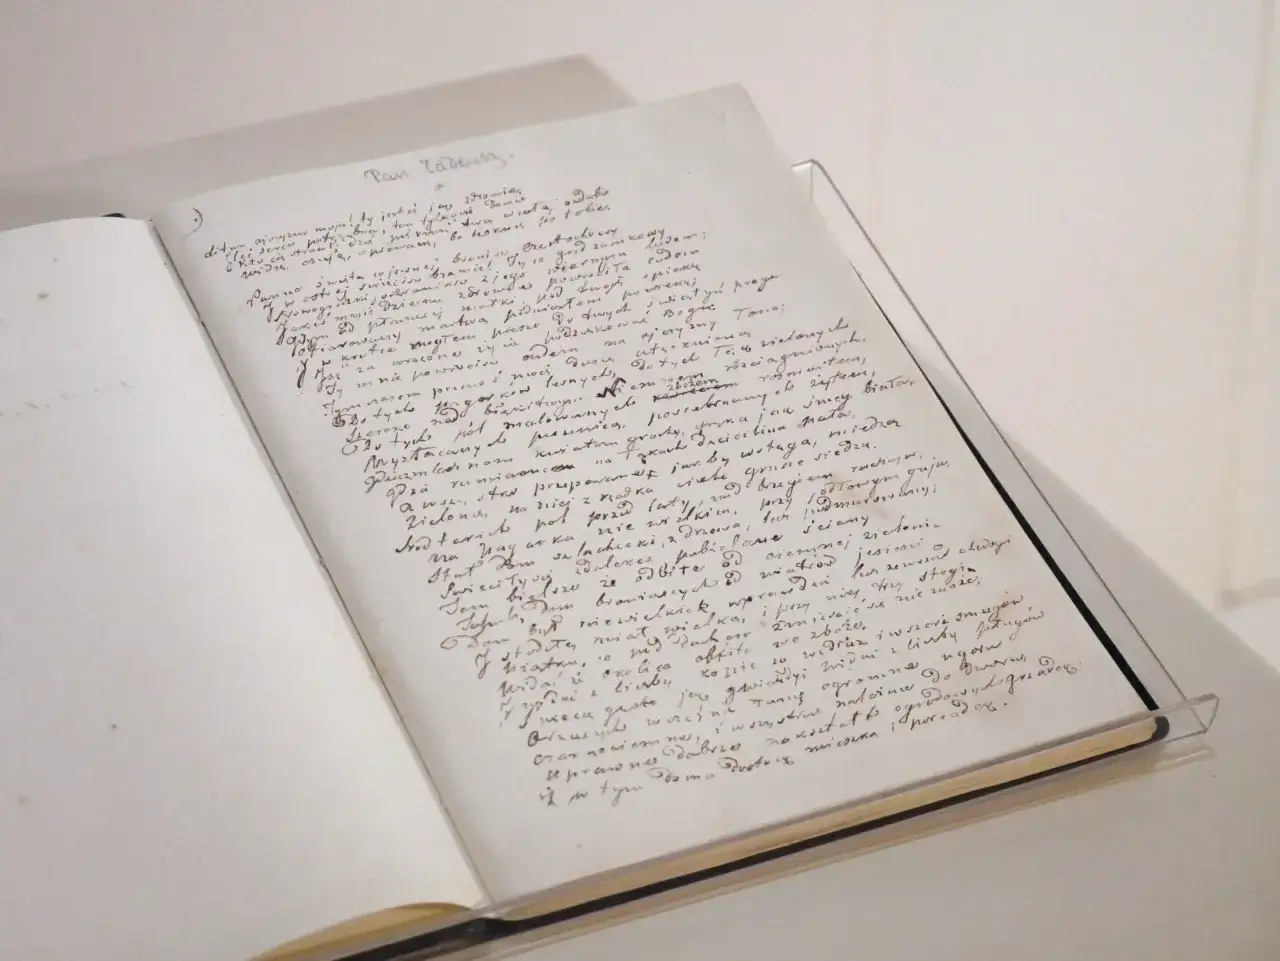 Pan Tadeusz.
Litwo ojczyzno moja! ty jesteś jak zdrowie
potrzebna, ten tylko dowie
Kto cię stracił. Dziś piękność twą w całej ozdobie
Widzę, czuję, opiewam, bo tęsknię po tobie.
Panno święta co jasnej bronisz Częstochowy
I w ostrej świecisz bramie! Ty co gród zamkowy
Nowogródzki, ochraniasz z jego wiernym ludem;
Jakeś mnie dziecko zdrowiu powróciła cudem
Gdym od płaczącej matki pod twoją opiekę
Ofiarowany martwą podniosłem powiekę;
I wkrótce mogłem pieszo do twych świątyń progu
Iść za wrócone życie podziękować Bogu
Ty mnie powrócisz cudem na ojczyzny łono;
Tymczasem przenoś moją duszę utęsknioną
Do tych pagórków leśnych, do tych łąk zielonych
Szeroko nad błękitnym Niemnem rozciągnionych.
Do tych pól malowanych zbożem rozmaitem,
Wyzłacanych pszenicą, posrebrzanych żytem,
kwiatem grochy, gryka jak śnieg biała,
Gdzie na łąkach dzięcielina pała,
A wszystko przepasane jakby wstęgą, miedzą
Zieloną, na niej z rzadka ciche grusze siedzą.
Śród takich pól przed laty, nad brzegiem ruczaju,
Na pagórku niewielkim, przy jodłowym gaju,
Stał dom szlachecki, z drzewa, lecz podmurowany;
Świeciły się zdaleka pobielane ściany
Tem bielsze że odbite od ciemnej zieleni
Topoli, Dom broniących od wiatrów jesieni
Dom był niewielki wprawdzie lecz zewsząd chędogi
I stodołę miał wielką, i przy niej trzy stogi
co pod dachem zmieścić się nie może;
Widać że okolica obfita we zboże,
I widać z liczby kopic co wzdłuż i wszerz smugów
Świecą gęsto jak gwiazdy, widać z liczby pługów
Orzących wcześnie łany ogromne ugoru
Czarnoziemne, i wszystkie należne do dworu,
Uprawne dobrze na kształt ogrodowych grządek:
Że w tym domu dostatek mieszka i porządek.